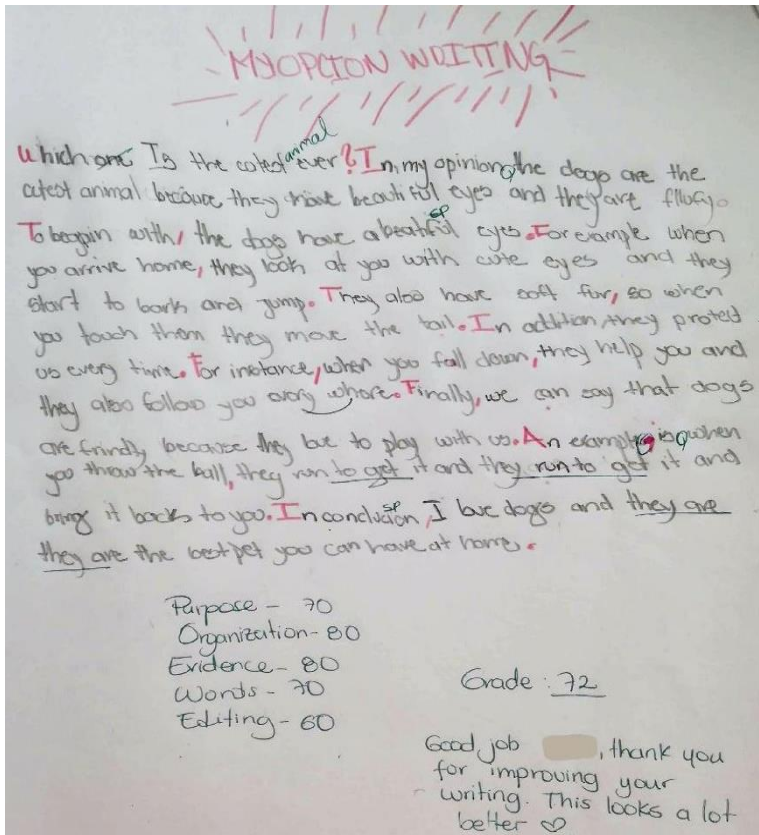 MY OPCION WRITTING
Which one Is the cutest animal ever? In my opinion, the dogs are the
cutest animal because they have beautiful eyes and they are fllufy.
To beagin with, the dogs have a beatiful sp eyes. For example when
you arrive home, they look at you with cute eyes and they
start to bark and jump. They also have soft fur, so when
you touch them they move the tail. In addition, they protect
us every time. For instance, when you fall down, they help you and
they also follow you every where. Finally, we can say that dogs
are frindly because they love to play with us. An example is when
you throw the ball, they run to get it and they run to get it and
bring it back to you. In conclusion sp, I love dogs and they are
they are the best pet you can have at home.
Purpose - 70
Organization - 80
Evidence - 80
Words - 70
Editing - 60
Grade : 72
Good job , thank you
for improving your
writing. This looks a lot
better ♡